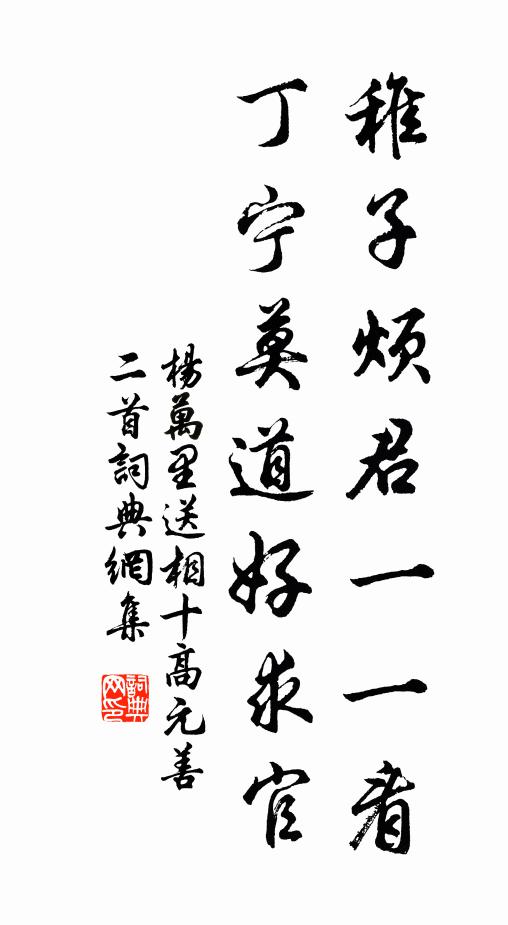 稚子煩君一一看
丁宁莫道好求官
楊萬里送相士高元善
二首詞典網集
詞典网印